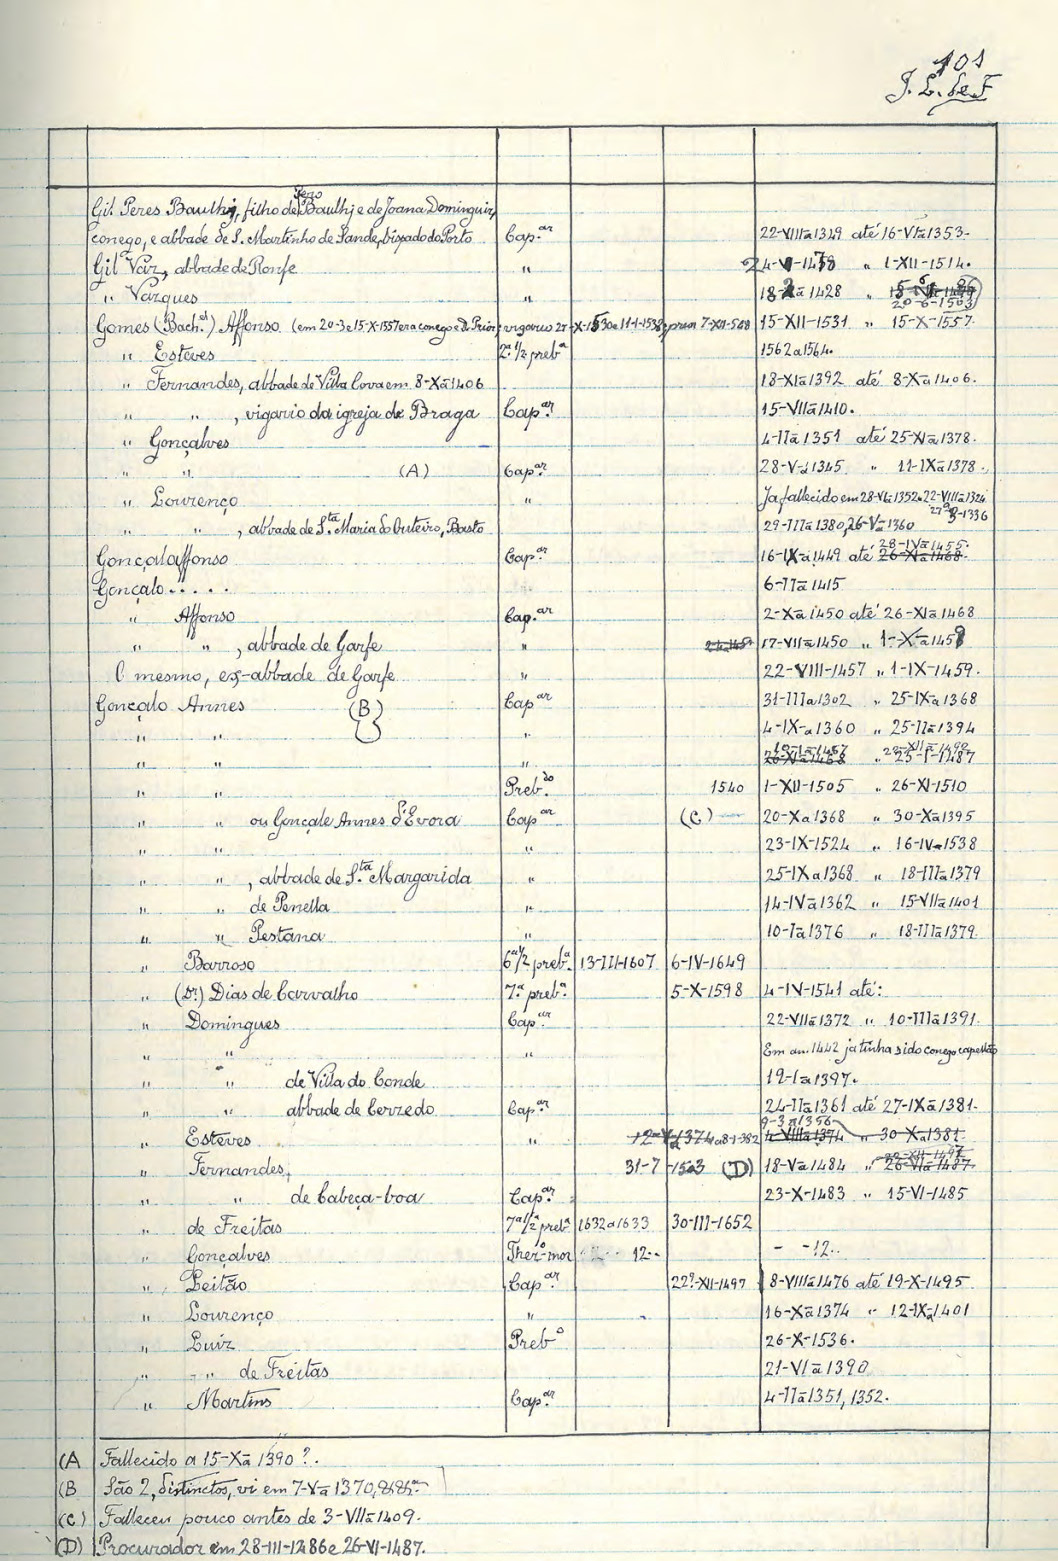 101
J. L. de F
Gil Peres Baulhj, filho de Pero Baulhj e de Joana Dominguiz,
conego, e abbade de S. Martinho de Sande, bispado do Porto Cap.ar 22-VIIIa1349 até 16-VIa1353.
Gil Vaz, abbade de Ronfe " 24-V-1478 " 1-XII-1514.
" Vasques " 1428 " 20-6-1503
Gomes (Bach.el) Affonso (em 20-3 e 15-X-1557 era conego e D. Prior, vigario 27-X-1530 e 11-1-1538, 7-XII-508 15-XII-1531 " 15-X-1557.
" Esteves 2ª 1/2 preb.ª 1562 a 1564.
" Fernandes, abbade de Villa Cova em 8-Xa1406 18-XIa1392 até 8-Xa1406.
" " , vigario da igreja de Braga Cap.ar 15-VIIa1410.
" Gonçalves 4-IIa1351 até 25-XIa1378.
" " (A) Cap.ar 28-V-a1345 " 11-IXa1378.
" Lourenço " Ja fallecido em 28-VIa1352. 22-VIIIa1324
" " , abbade de S.ta Maria do Outeiro, Basto 29-IIIa1380, 26-Va1360 1336
Gonçalaffonso Cap.ar 16-IX-a1449 até 26-XIa1468 28-IVa1455.
Gonçalo..... 6-IIa1415
" Affonso Cap.ar 2-Xa1450 até 26-XIa1468
" " , abbade de Garfe " 17-VIIa1450 " 1-X-a1459
O mesmo, ex-abbade de Garfe " 22-VIII-1457 " 1-IX-1459.
Gonçalo Annes (B) Cap.ar 31-IIIa1302 " 25-IXa1368
" " " 4-IX-a1360 " 25-IIa1394
" " " 26-XIa1468 10-I-a1467 " 25-I-1487 20-XIIa1490
" " Preb.do 1540 1-XII-1505 " 26-XI-1510
" " ou Gonçale Annes d'Evora Cap.ar (C) 20-Xa1368 " 30-Xa1395
" " " 23-IX-1524 " 16-IV-1538
" " , abbade de S.ta Margarida " 25-IXa1368 " 18-IIIa1379
" " de Penella " 14-IVa1362 " 15-VIIa1401
" " Pestana " 10-Ia1376 " 18-IIIa1379.
" Barroso 6ª 1/2 preb.ª 13-III-1607 6-IV-1649
" (Dr.) Dias de Carvalho 7.ª preb.ª 5-X-1598 4-IV-1541 até:
" Domingues Cap.ar 22-VIIa1372 " 10-IIIa1391.
" " " Em an. 1442 ja tinha sido conego capellão
" " de Villa do Conde 19-Ia1397.
" " abbade de Cerzedo Cap.ar 24-IIa1361 até 27-IXa1381.
" Esteves " 12-Va1374 a 8-1-382 4-VIIIa1374 9-3-a1356 " 30-Xa1381
" Fernandes, 31-7-1503 (D) 18-Va1484 " 26-VIa1487
" " de Cabeça-boa Cap.ar 23-X-1483 " 15-VI-1485
" de Freitas 7ª 1/2 preb.ª 1632 a 1633 30-III-1652
" Gonçalves Thes.º-mor 12.. - -12..
" Leitão Cap.ar 22?-XII-1497 8-VIIIa1476 até 19-X-1495
" Lourenço " 16-Xa1374 " 12-IXa1401
" Luiz Preb.º 26-X-1536.
" " de Freitas 21-VIa1390
" Martins Cap.ar 4-IIa1351, 1352.
(A Fallecido a 15-Xa1390?.
(B São 2, distinctos, vi em 7-Va1370,
(C) Falleceu pouco antes de 3-VIIa1409.
(D) Procurador em 28-III-1486 e 26-VI-1487.